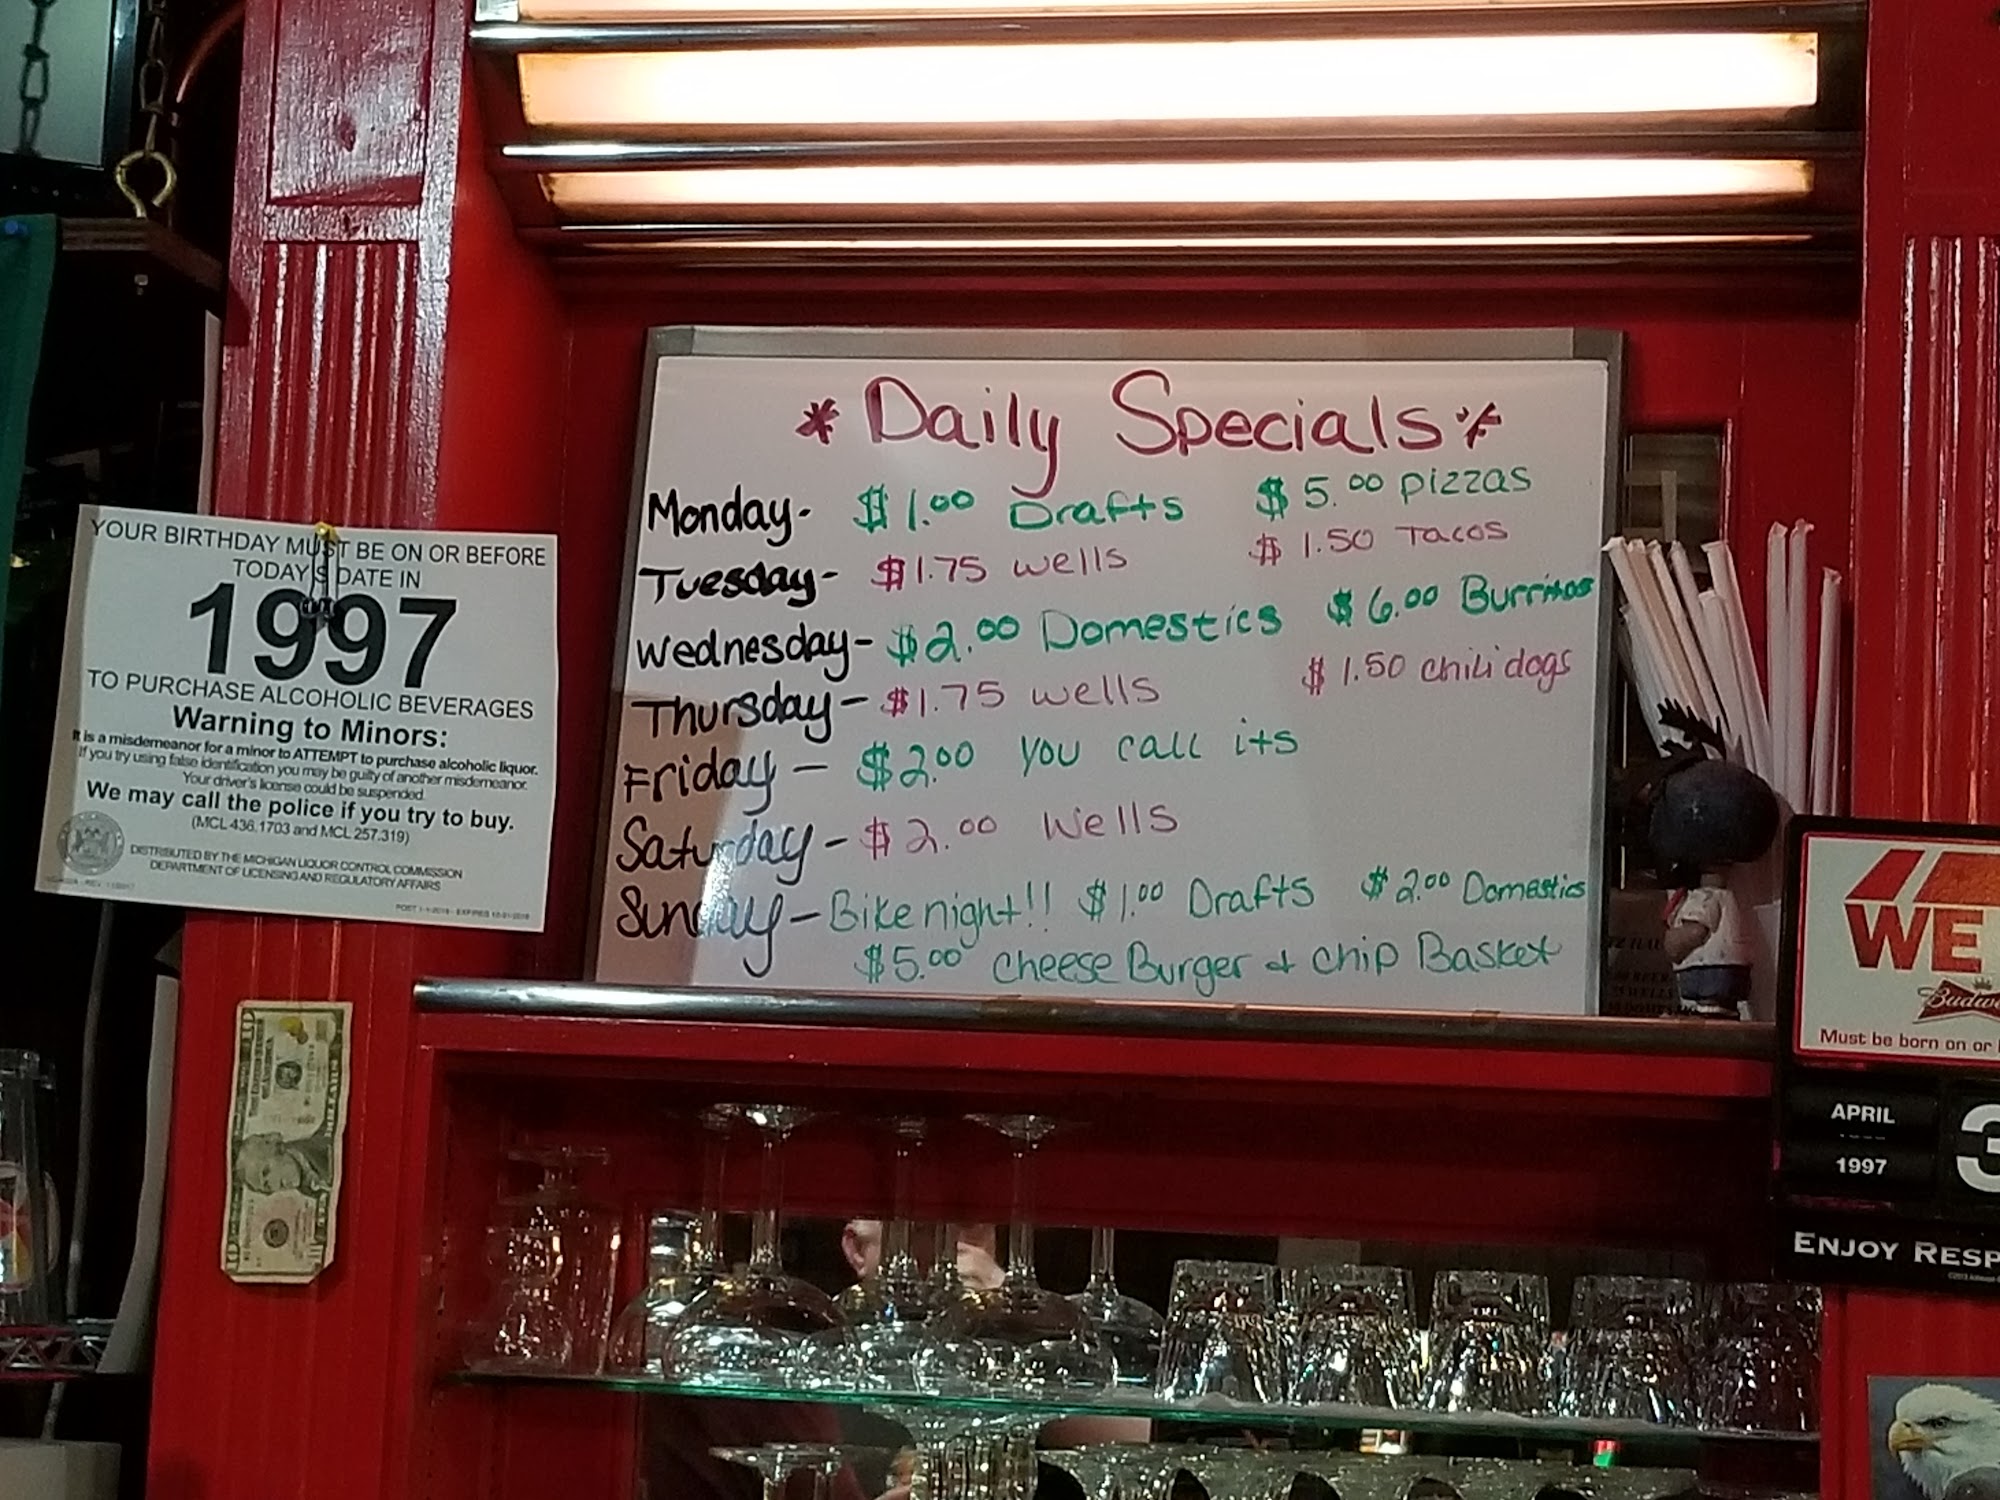 YOUR BIRTHDAY MUST BE ON OR BEFORE
TODAY'S DATE IN
1997
TO PURCHASE ALCOHOLIC BEVERAGES
Warning to Minors:
It is a misdemeanor for a minor to ATTEMPT to purchase alcoholic liquor.
If you try using false identification you may be guilty of another misdemeanor.
Your driver's license could be suspended.
We may call the police if you try to buy.
(MCL 436.1703 and MCL 257.319)
DISTRIBUTED BY THE MICHIGAN LIQUOR CONTROL COMMISSION
DEPARTMENT OF LICENSING AND REGULATORY AFFAIRS
* Daily Specials *
Monday- $1.00 Drafts $5.00 pizzas
Tuesday- $1.75 wells $1.50 Tacos
Wednesday- $2.00 Domestics $6.00 Burritos
Thursday- $1.75 wells $1.50 chili dogs
Friday - $2.00 you call its
Saturday - $2.00 Wells
Sunday - Bike night!! $1.00 Drafts $2.00 Domestics
$5.00 Cheese Burger + chip Basket
WE
Must be born on or
APRIL
1997
3
ENJOY RESP
10